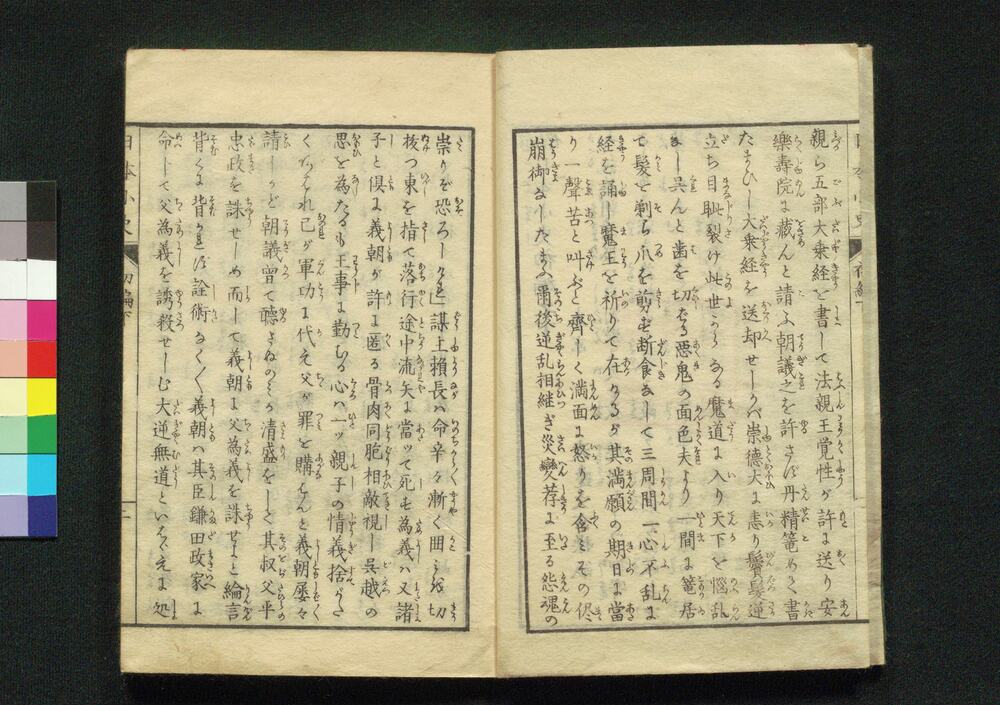 親ら五部大乗経を書して法親王覚性が許に送り安
樂壽院に蔵んと請ふ朝議之を許さず丹精篭めし書
たまひし大乗経を送却せしかバ崇德大に恚り鬢髪逆
立ち目眦裂け此世からなる魔道に入り天下を悩乱
なし呉んと歯を切たる悪鬼の面色夫より一間に篭居
て髪を剃らず爪を剪ず断食なして三周間一心不乱に
経を誦し魔王を祈りて在けるが其満願の期日に當
り一聲苦と叫ぶと齊しく満面に怒りを含みその侭
崩御なしたまふ爾後逆乱相継ぎ災變荐に至る怨魂の
崇りぞ恐ろしけれ」謀主頼長ハ命辛々漸く囲みを切
抜つ東を指て落行途中流矢に當ッて死せ為義ハ又諸
子と倶に義朝が許に匿る骨肉同胞相敵視し呉越の
思を為たるも王事に勤むる心ハ一ッ親子の情義捨がた
く
己が軍功に代え父が罪を贖はんと義朝屡々
請しかど朝議曽て聴さねのミか清盛をして其叔父平
忠政を誅せしめ而して義朝に父為義を誅せよと綸言
背くに背かれず詮術なく〱義朝ハ其臣鎌田政家に
命して父為義を誘殺せしむ大逆無道といふべえに処
日本小史
初編下